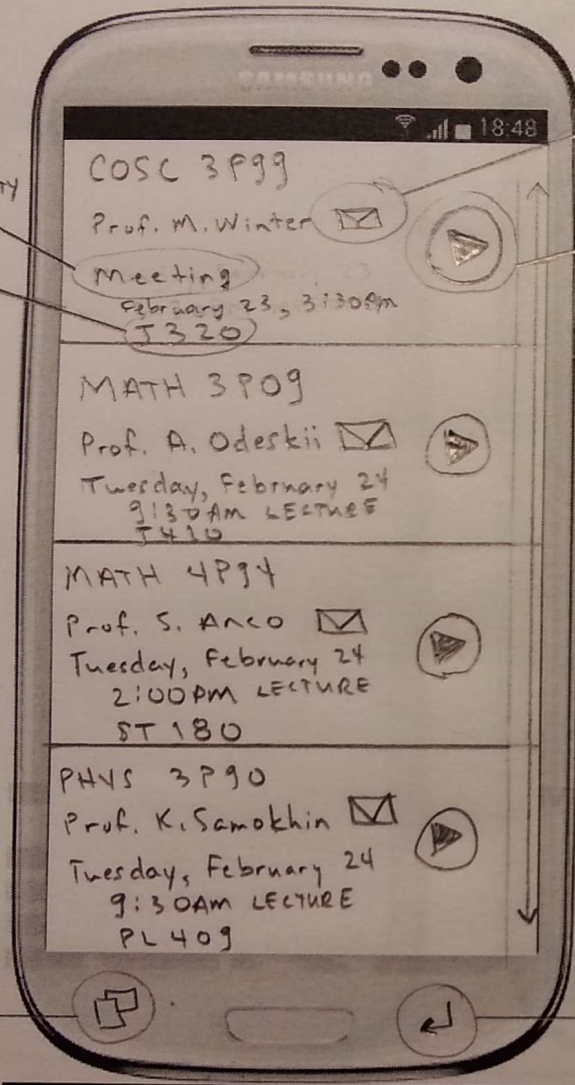 SAMSUNG
18:48
TY
COSC 3P99
Prof. M. Winter
Meeting
February 23, 3:30pm
J320
MATH 3P09
Prof. A. Odeskii
Tuesday, February 24
9:30AM LECTURE
J410
MATH 4P94
Prof. S. Anco
Tuesday, February 24
2:00PM LECTURE
ST 180
PHYS 3P90
Prof. K. Samokhin
Tuesday, February 24
9:30AM LECTURE
PL 409